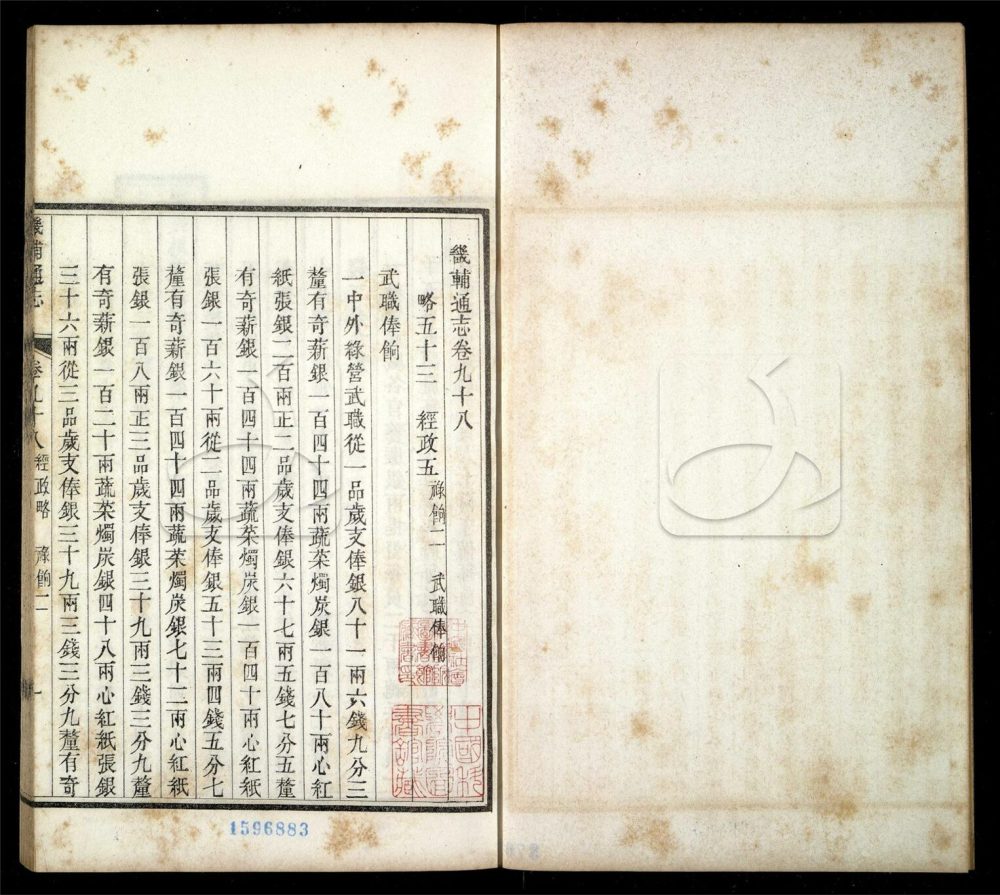 畿輔通志卷九十八
略五十三 經政五 祿餉二 武職俸餉
武職俸餉
一中外綠營武職從一品歲支俸銀八十一兩六錢九分三
釐有奇薪銀一百四十四兩蔬菜燭炭銀一百八十兩心紅
紙張銀二百兩正二品歲支俸銀六十七兩五錢七分五釐
有奇薪銀一百四十四兩蔬菜燭炭銀一百四十兩心紅紙
張銀一百六十兩從二品歲支俸銀五十三兩四錢五分七
釐有奇薪銀一百四十四兩蔬菜燭炭銀七十二兩心紅紙
張銀一百八兩正三品歲支俸銀三十九兩三錢三分九釐
有奇薪銀一百二十兩蔬菜燭炭銀四十八兩心紅紙張銀
三十六兩從三品歲支俸銀三十九兩三錢三分九釐有奇
畿輔通志 卷九十八 經政略 祿餉二 一
1596883